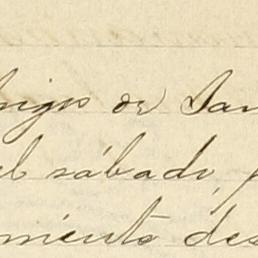 de San
el sábado,
miento des